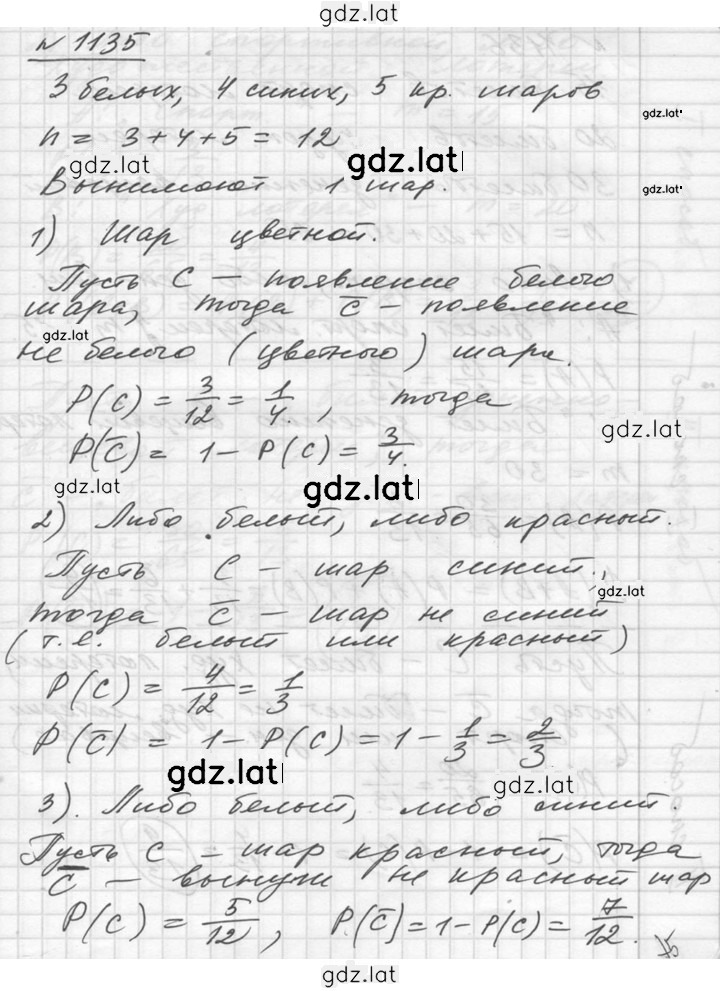 gdz.lat
№ 1135
3 белых, 4 синих, 5 кр. шаров
gdz.lat
n = 3+4+5 = 12
gdz.lat
gdz.lat
Вынимают 1 шар.
gdz.lat
1) Шар цветной.
Пусть C — появление белого
шара, тогда C̅ — появление
gdz.lat
не белого (цветного) шара.
P(C) = 3/12 = 1/4, тогда
gdz.lat
P(C̅) = 1 - P(C) = 3/4.
gdz.lat
gdz.lat
2) Либо белый, либо красный.
Пусть C — шар синий,
gdz.lat
тогда C̅ — шар не синий
(т.е. белый или красный)
P(C) = 4/12 = 1/3
P(C̅) = 1 - P(C) = 1 - 1/3 = 2/3
gdz.lat
gdz.lat
3). Либо белый, либо синий.
Пусть C — шар красный, тогда
C̅ — вынут не красный шар
P(C) = 5/12, P(C̅) = 1 - P(C) = 7/12.
gdz.lat